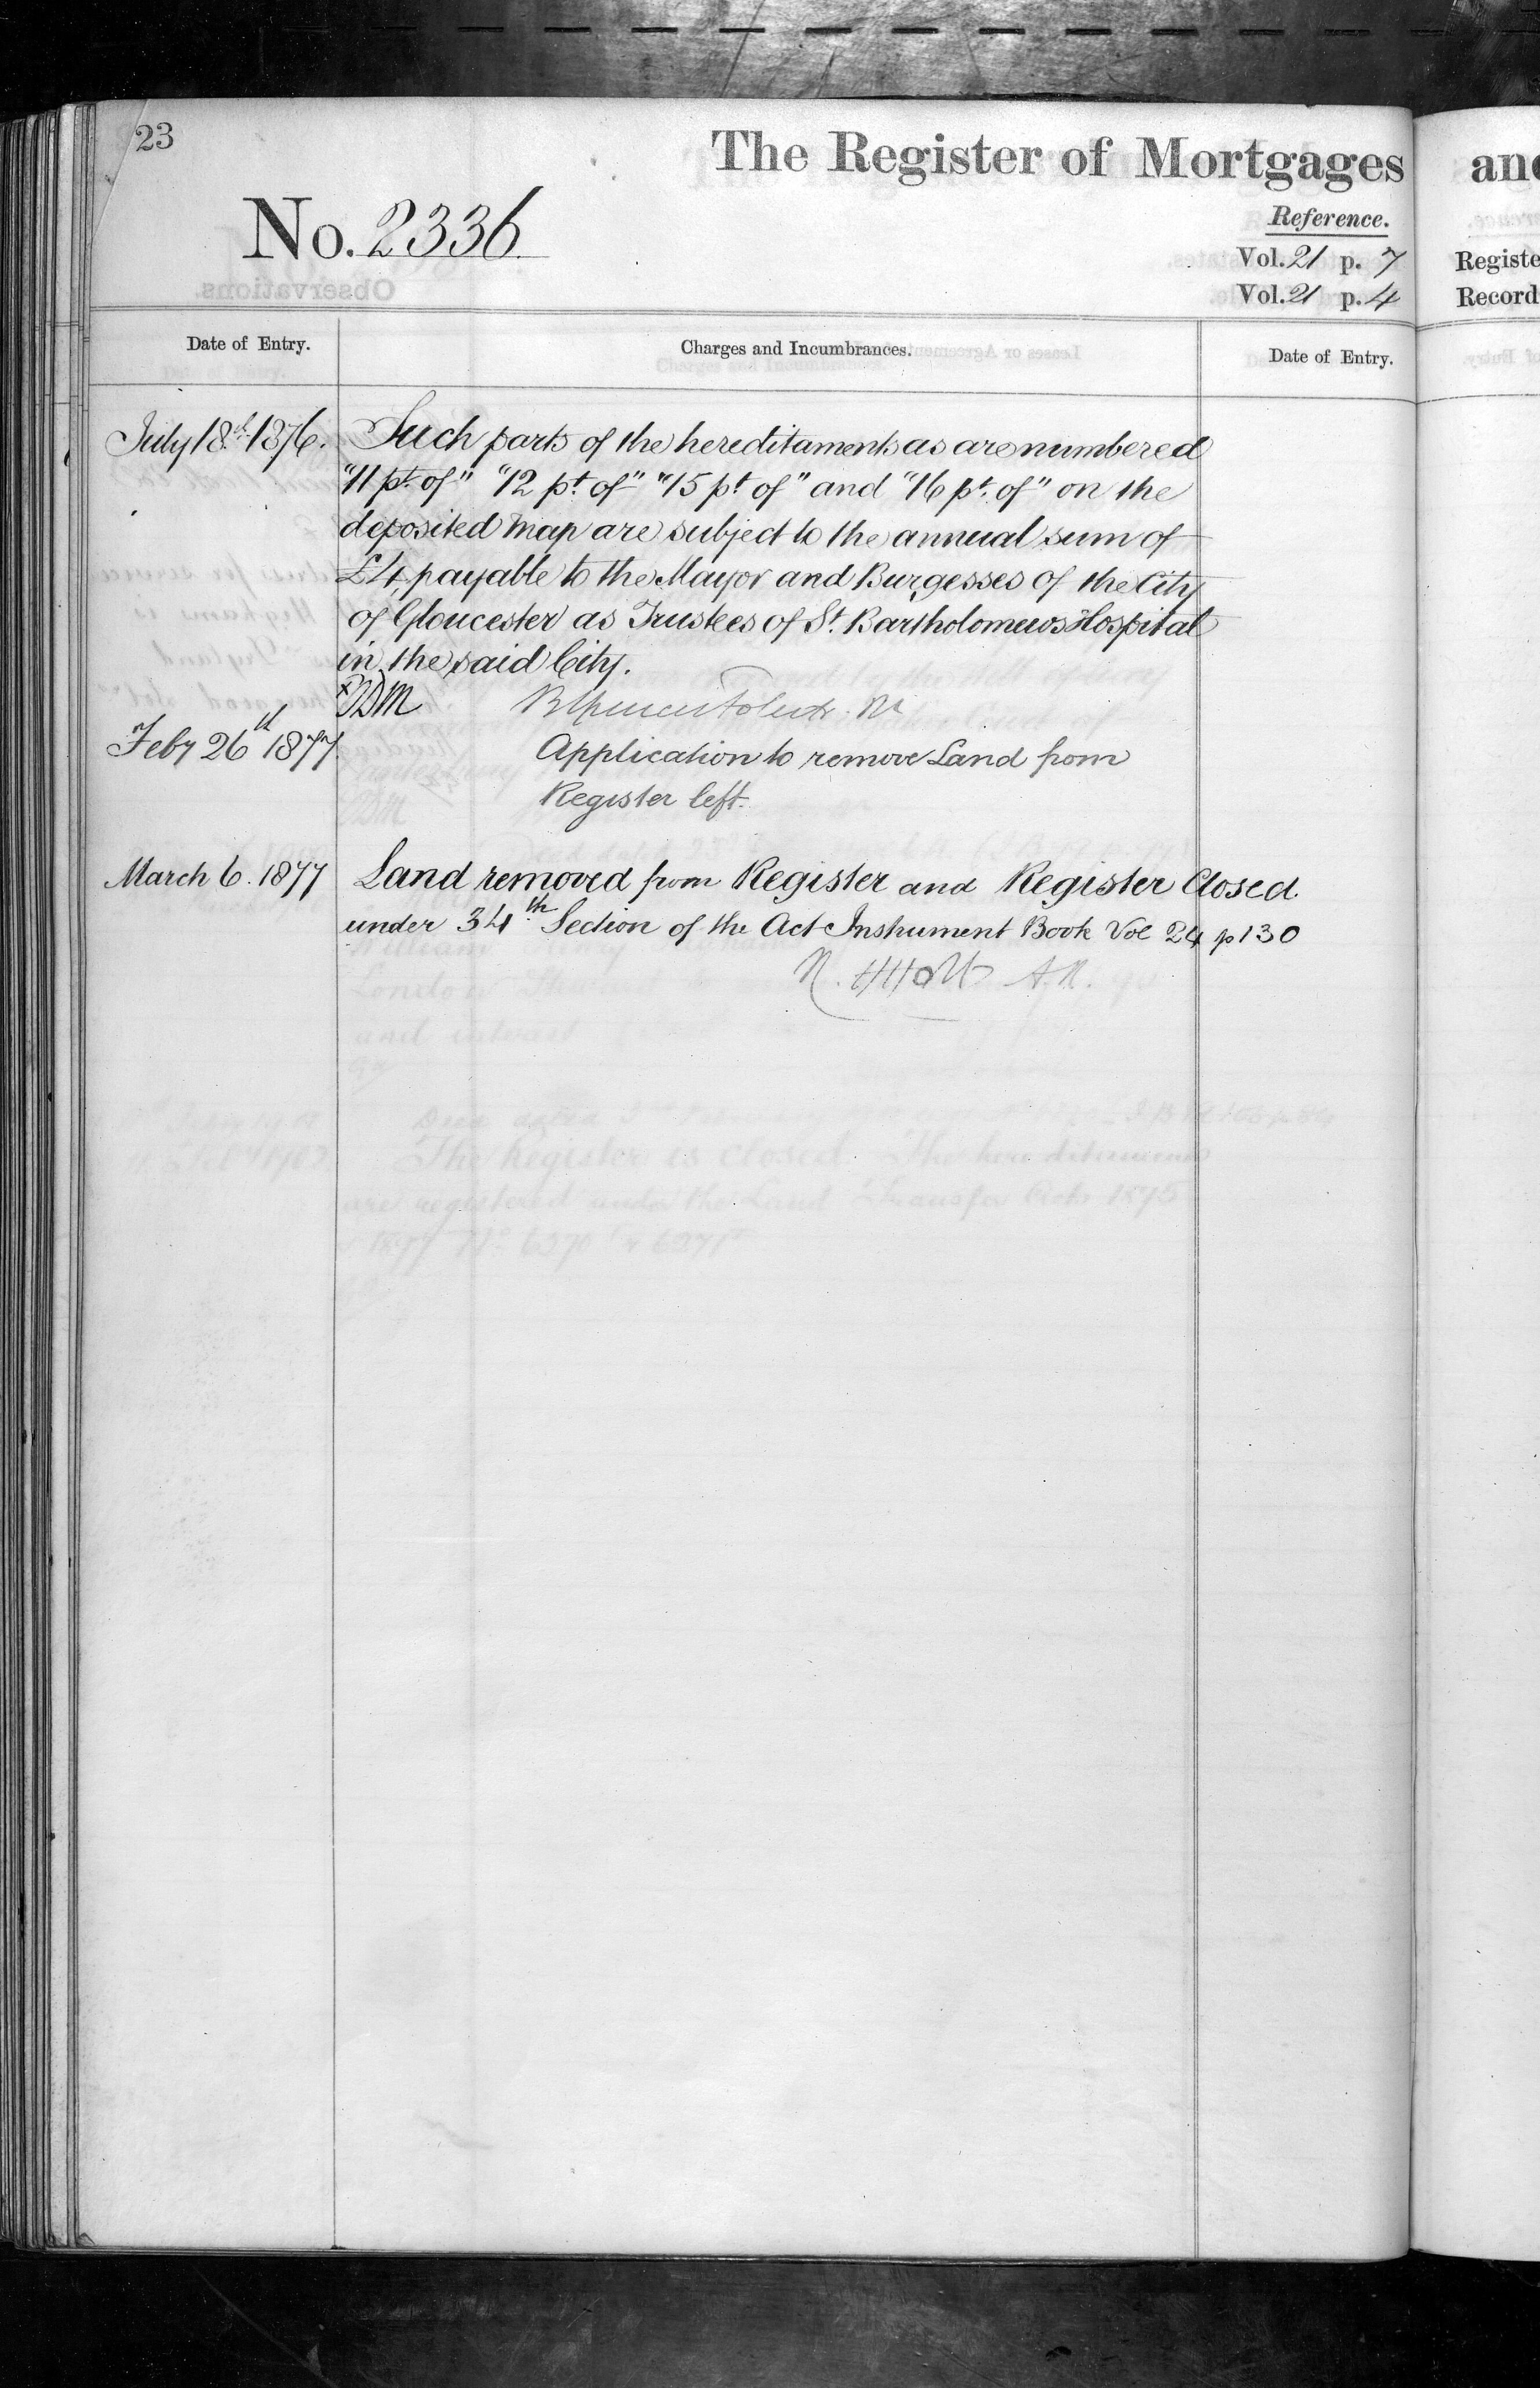 23
The Register of Mortgages
No. 2336
Reference.
Vol. 21 p. 7
Vol. 21 p. 4
Date of Entry.
Charges and Incumbrances.
Date of Entry.
July 18th 1876.
Such parts of the hereditaments as are numbered
"11 pt. of" "12 pt. of" "15 pt of" and "16 pt. of" on the
deposited Map are subject to the annual sum of
£4, payable to the Mayor and Burgesses of the City
of Gloucester as Trustees of St. Bartholomews Hospital
in the said City.
Feby 26th 1877
Application to remove Land from
Register left.
March 6. 1877
Land removed from Register and Register Closed.
under 34th Section of the Act Instrument Book Vol 24 p 130
and
Registe
Record